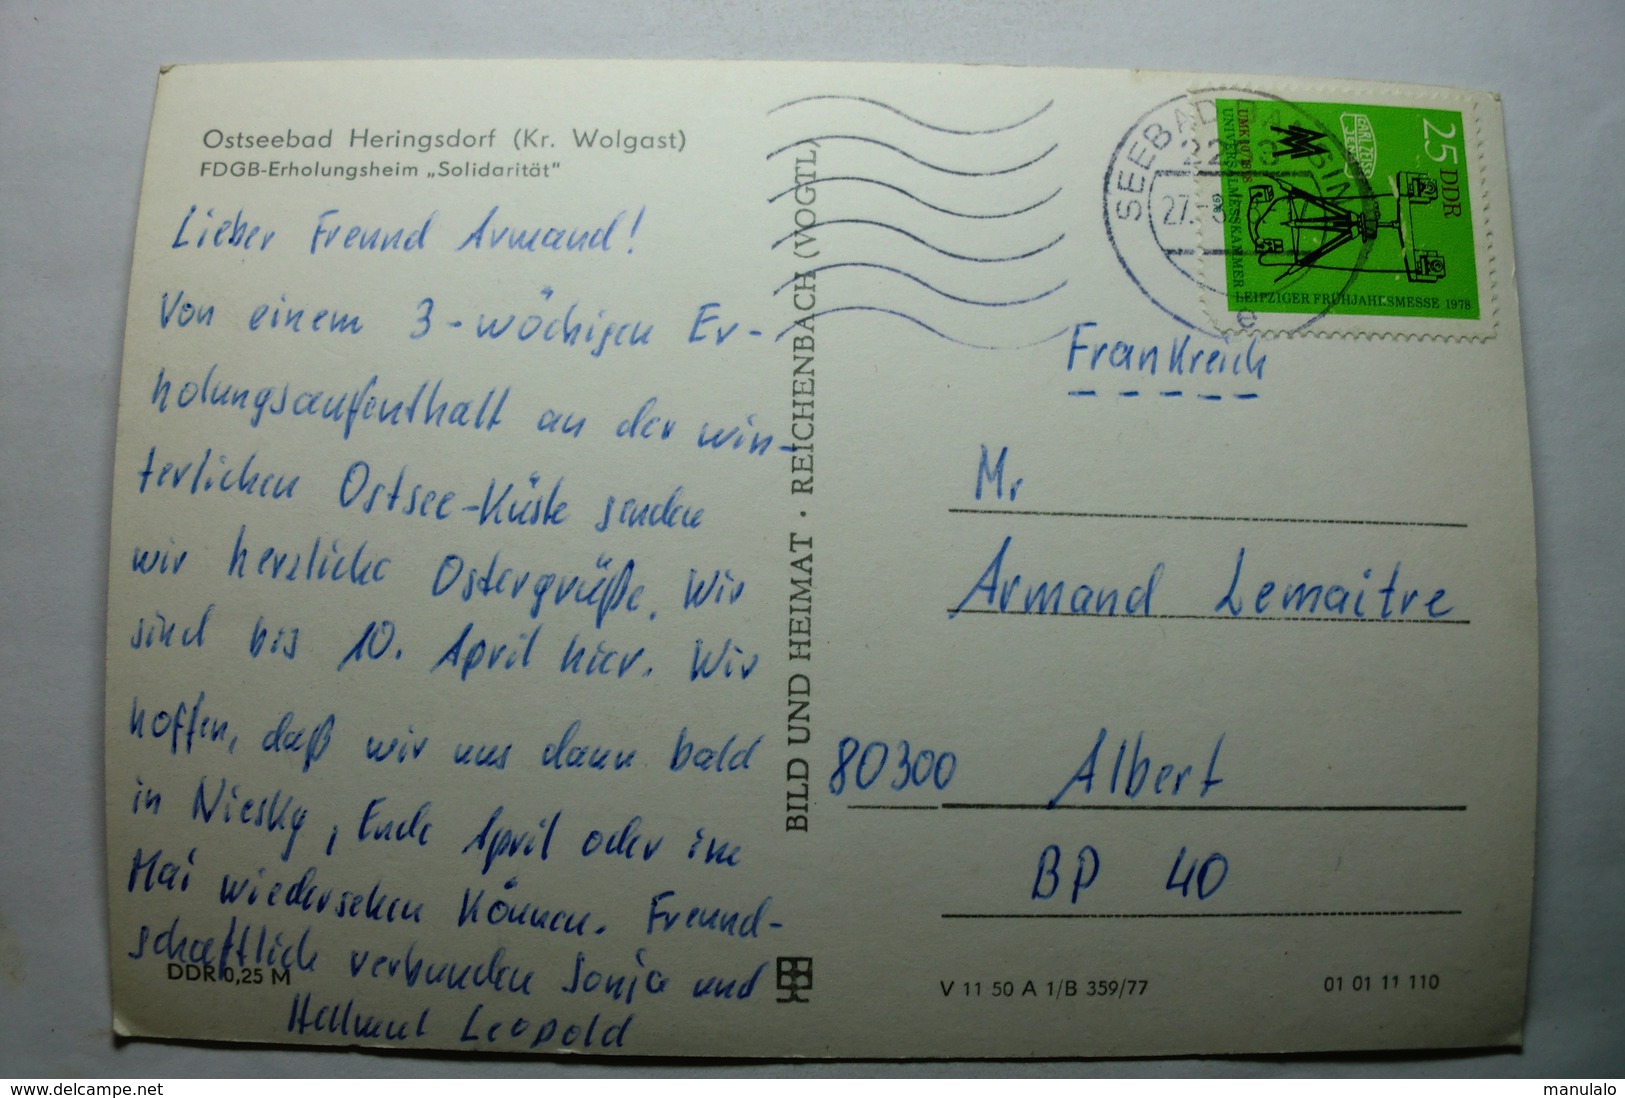 Ostseebad Heringsdorf (Kr. Wolgast)
FDGB-Erholungsheim „Solidarität"
Lieber Freund Armand!
Von einem 3-wöchigen Er-
holungsaufenthalt an der win-
terlichen Ostsee-Küste senden
wir herzliche Ostergrüße. Wir
sind bis 10. April hier. Wir
hoffen, daß wir uns dann bald
in Niesky, Ende April oder im
Mai wiedersehen können. Freund-
schaftlich verbunden Sonja und
Hellmut Leopold
DDR 0,25 M
BILD UND HEIMAT · REICHENBACH (VOGTL)
SEEBAD BANSIN
22
27.
e
25 DDR
CARL ZEISS
JENA
UMK 10/1318
UNIVERSALMESSKAMMER
1978
LEIPZIGER FRÜHJAHRSMESSE 1978
Frankreich
Mr
Armand Lemaitre
80300 Albert
BP 40
V 11 50 A 1/B 359/77
01 01 11 110
delcampe.net
manulalo